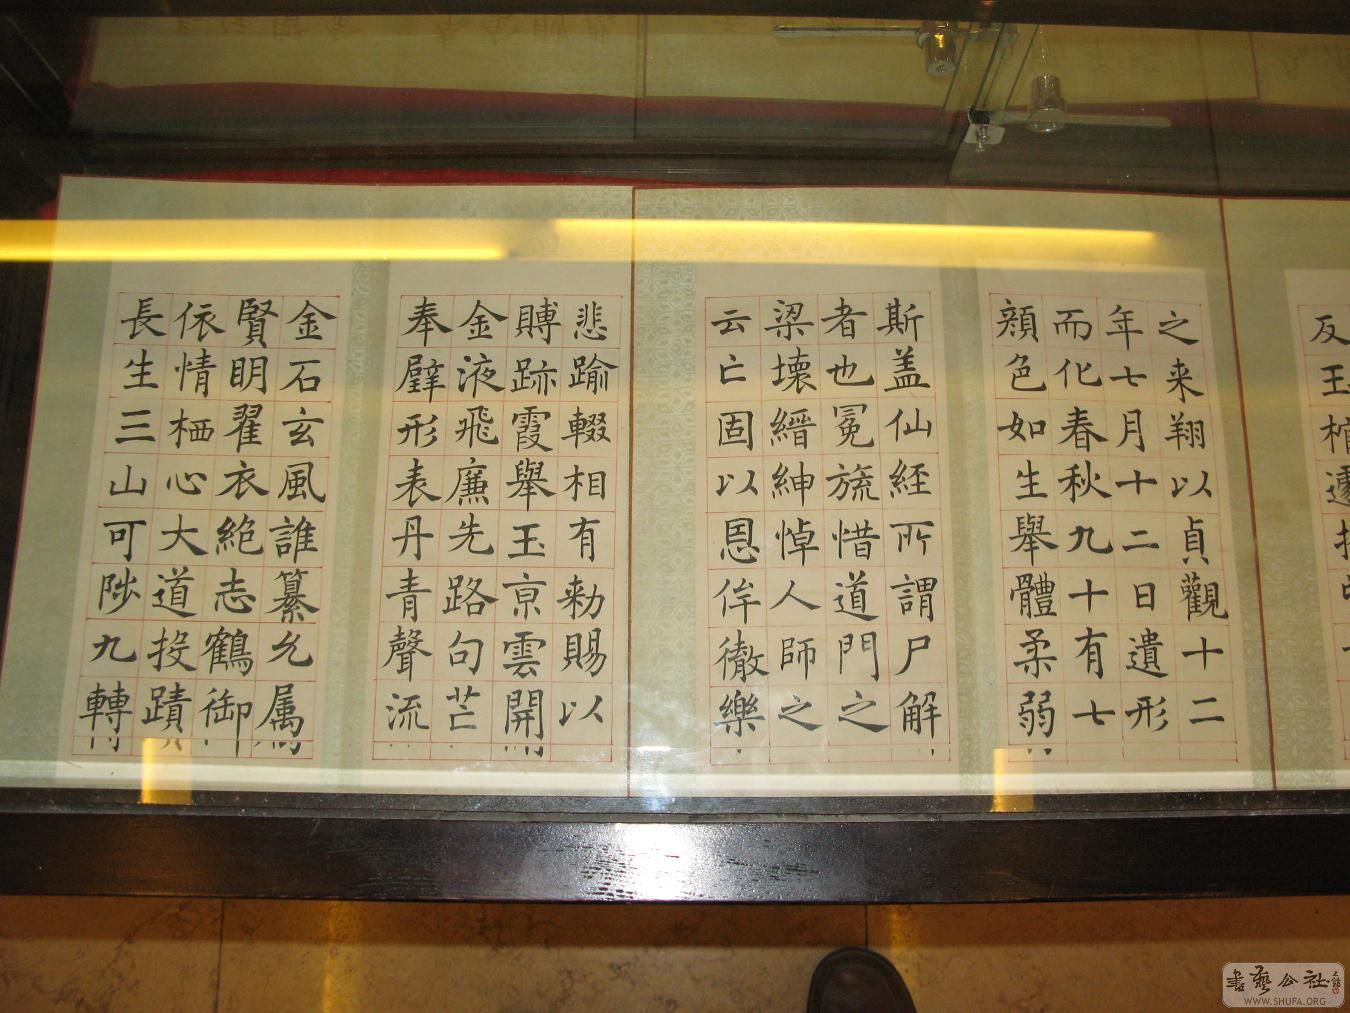 反玉
之来翔以貞觀十二
年七月十二日遺形
而化春秋九十有七
顔色如生舉體柔弱
斯盖仙經所謂尸解
者也冕旒惜道門之
梁壞縉紳悼人師之
云亡固以恩侔徹樂
悲踰輟相有勑賜以
賻跡霞舉玉亰雲開
金液飛廉先路句芒
奉璧形表丹青聲流
金石玄風誰纂允属
賢明翟衣絕志鶴御
依情栖心大道投蹟
長生三山可陟九轉
書藝公社
WWW.SHUFA.ORG